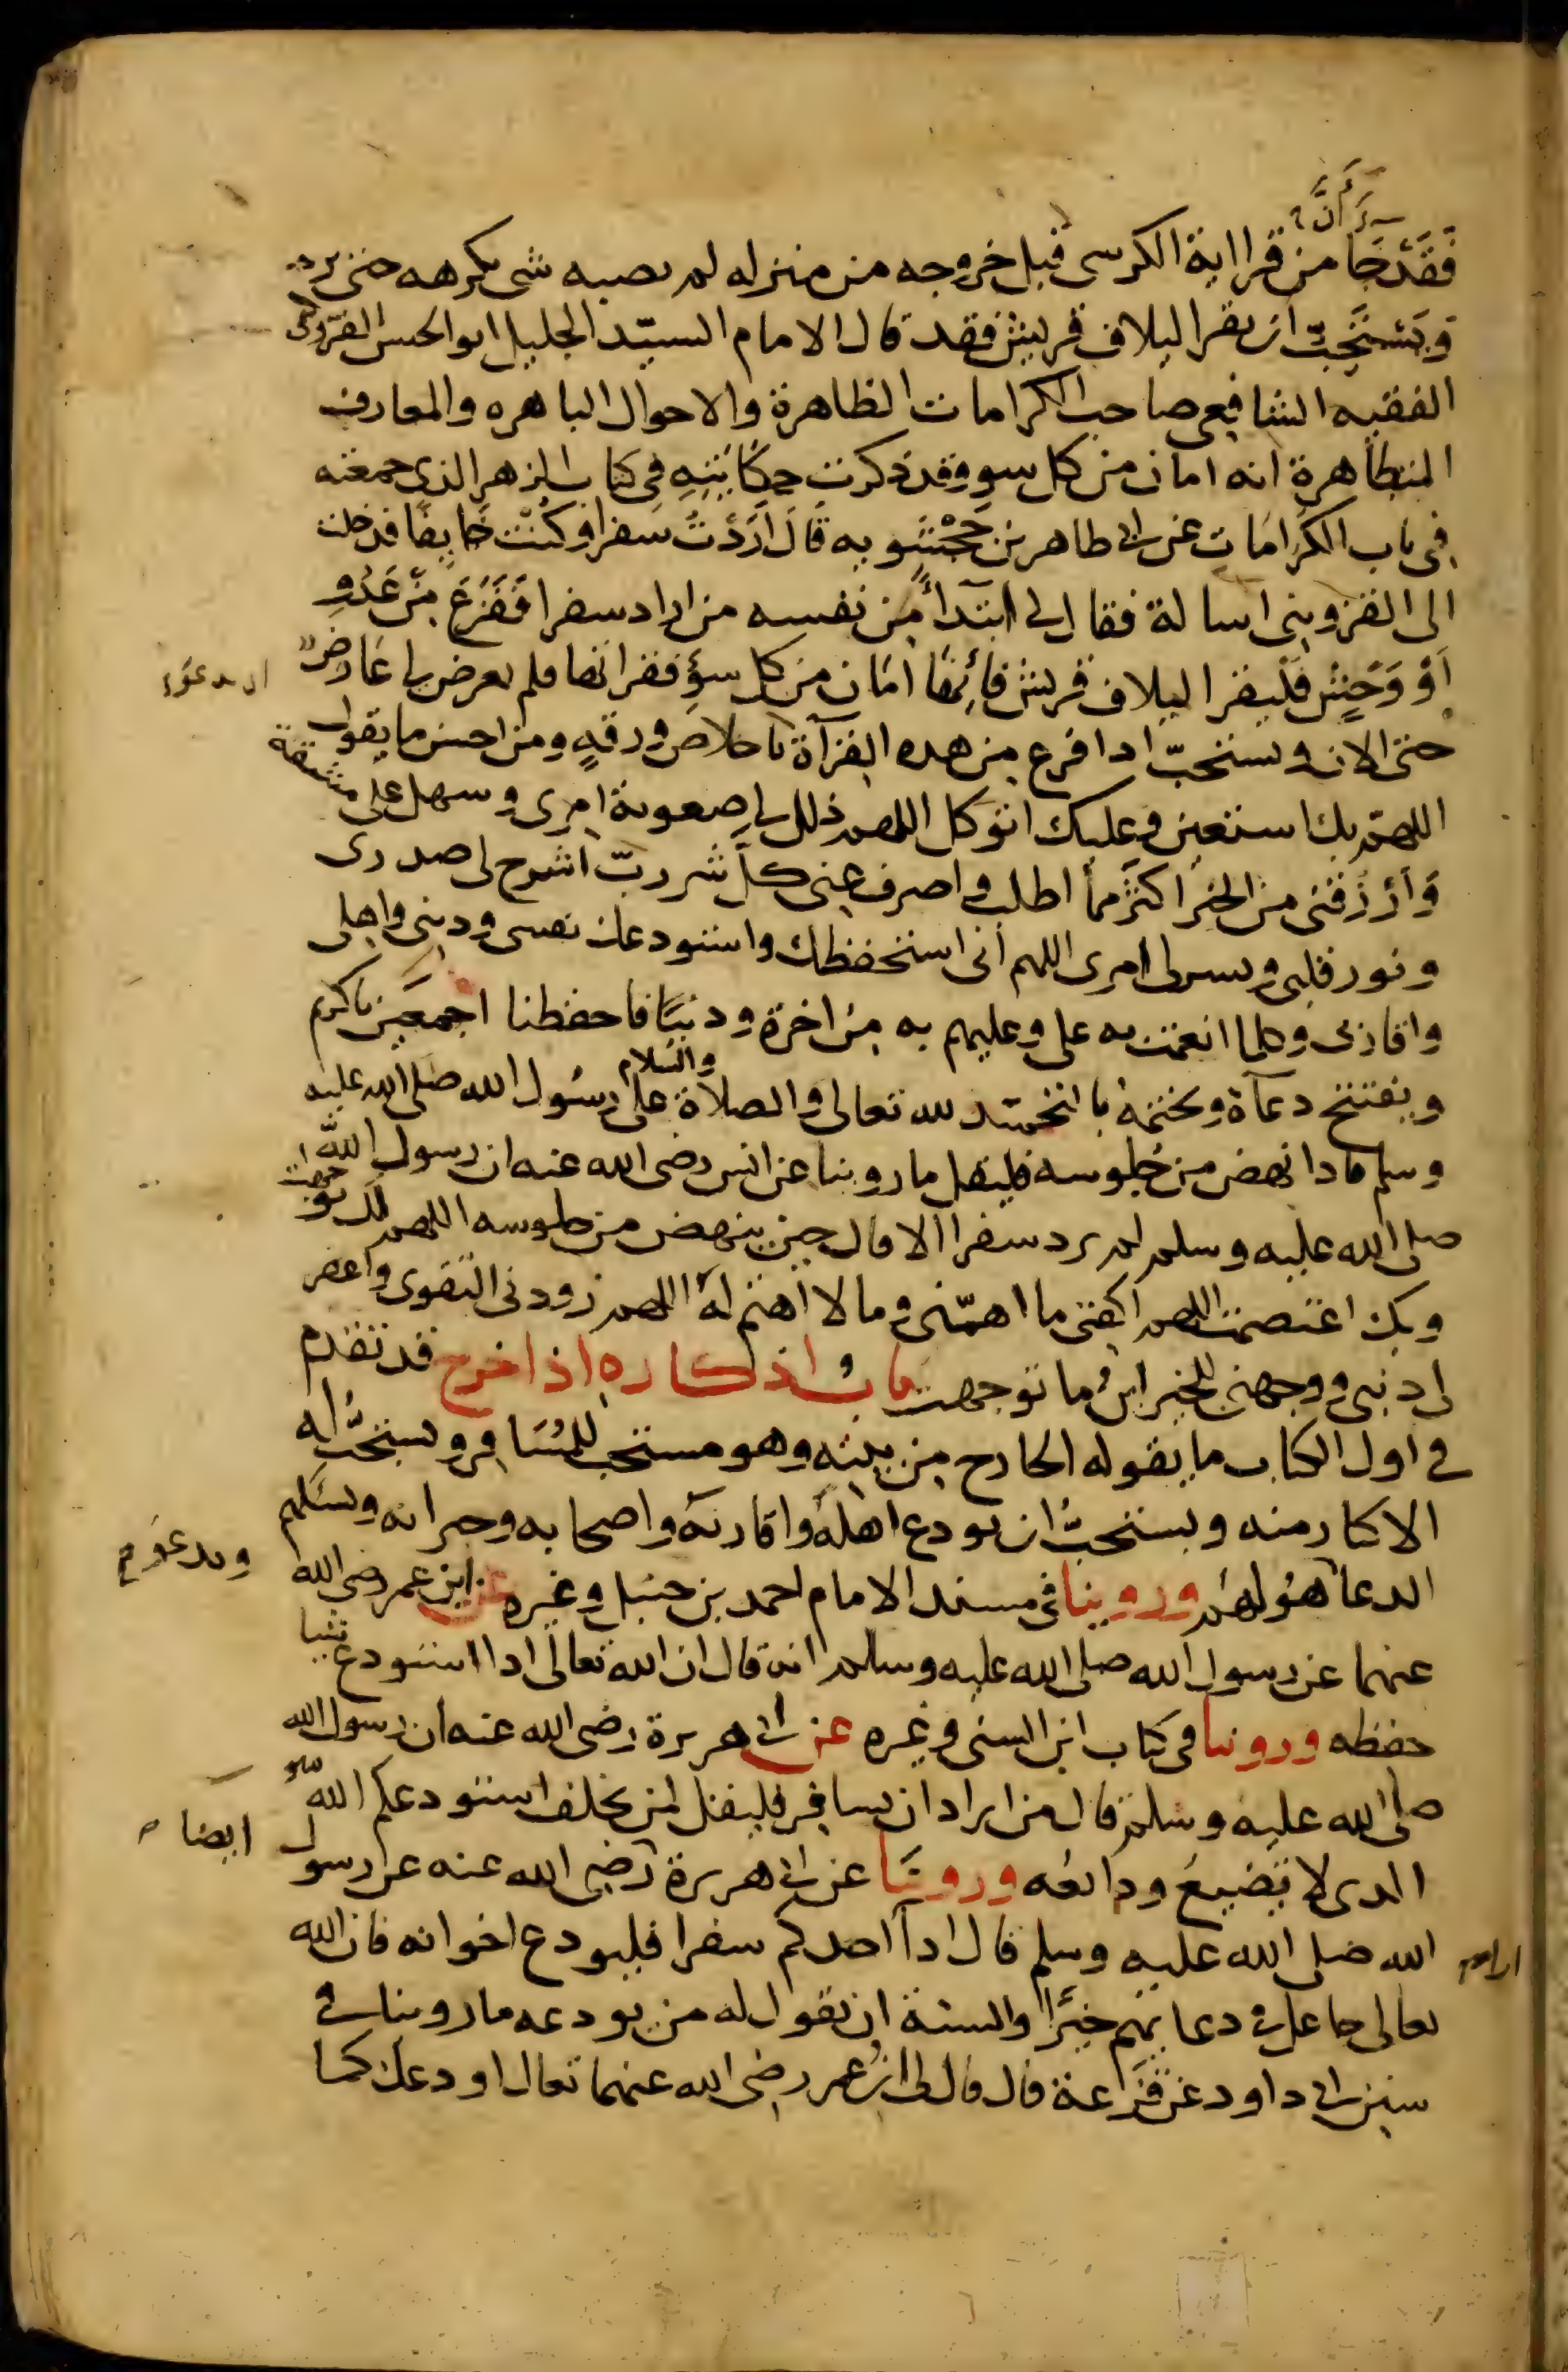 أنّ
فَقَدْ جَا من قرا اية الكرسي قبل خروجه من منزله لم يصبه شي يكرهه حتى يرجع
وَيُسْتَحَبّ ان يقرا لايلاف قريش فقد قال الامام السيّد الجليل ابو الحسن القزويني
الفقيه الشافعي صاحب الكرامات الظاهرة والاحوال الباهره والمعارف
المتظاهرة انه امان من كل سوء وقد ذكرت حِكَايَتِهِ في كتاب الزهد الذي جمعته
في باب الكَرَامَاتِ عن ابي طاهر بن جَحْشَويه قَالَ اَرَدْتُ سَفرا وكُنْت خَايِفًا فدخلت
الى القزويني اساله فقال لي ابتدآءً مِن نفسه من اراد سفرا فَفَزِعَ مِنْ عَدُوٍ
اَوْ وَحْشٍ فَلْيقرا لايلاف قريش فَاِنهَا اَمَان من كل سوءٍ فقراتها فلم يعرض لي عَارِض
حتى الان ويستحبّ اذا فرغ من هذه القرآة ان يدعوا باخلاص ورقةٍ ومن احسن ما يقول
اللهم بك استعين وعليك اتوكل اللهم ذلل لي صعوبة امري وسهل علي مشقة
وَارْزُقْني من الخير اكثَر مما اطلب واصرف عني كلّ شر ربّ اشرح لي صدري
ونور قلبي ويسر لي امري اللهم اني استحفظك واستودعك نفسي وديني واهلي
واقاربي وكلما انعمت به علي وعليهم به مِن اخرة ودنيَا فاحفظنا اجمعَين يا كريم
ويفتتح دعآه ويختمه بالتحميد لله تعالى والصلاة والسلام على رسول الله صلى الله عليه
وسلم فاذا نهض من جُلوسه فليقل ما روينا عن انس رضي الله عنه ان رسول الله
صلى الله عليه وسلم لم يرد سفرا الا قال حين ينهض من جلوسه اللهم اليك توجهت
وبك اعتصمت اللهم اكفني ما اهمّني وما لا اهتم لهُ اللهم زودني التقوى واغفر
لي ذنبي ووجهني للخير اينَ ما توجهت بابُ اذكاره اذا خرج قد تقدم
في اول الكتاب ما يقوله الخارج من بيته وهو مستحب للمُسَافِر ويستحبّ له
الاكثار منه ويستحبّ ان يودع اهلَه واقاربَهُ واصحابه وجيرانه ويسَلهم
الدعا لَهُ ولهُم وروينا في مسند الامام احمد بن حنبل وغيره عن ابن عمر رضي الله
ويدعو لهم
عنهما عن رسول الله صلى الله عليه وسلم انه قال ان الله تعالى اذا استودع شيا
حفظه وروينا في كتاب ابن السني وغيره عن ابي هريرة رضي الله عنه ان رسول الله
صلى الله عليه وسلم قال من اراد ان يسافر فليقل لمن يخلف استودعكم الله
الذي لا تَضِيعُ ودائعُه وروينَا عن ابي هريرة رضي الله عنه عن رسول
ايضا
الله صلى الله عليه وسلم قال اذا اراد احدكم سفرا فليودع اخوانه فان الله
تعالى جاعل في دعايهم خيرًا والسنة ان يقول له من يودعه ما روينا في
سنن ابي داود عن قَزَعَة قال قال لي ابنُ عمر رضي الله عنهما تعال اودعك كما